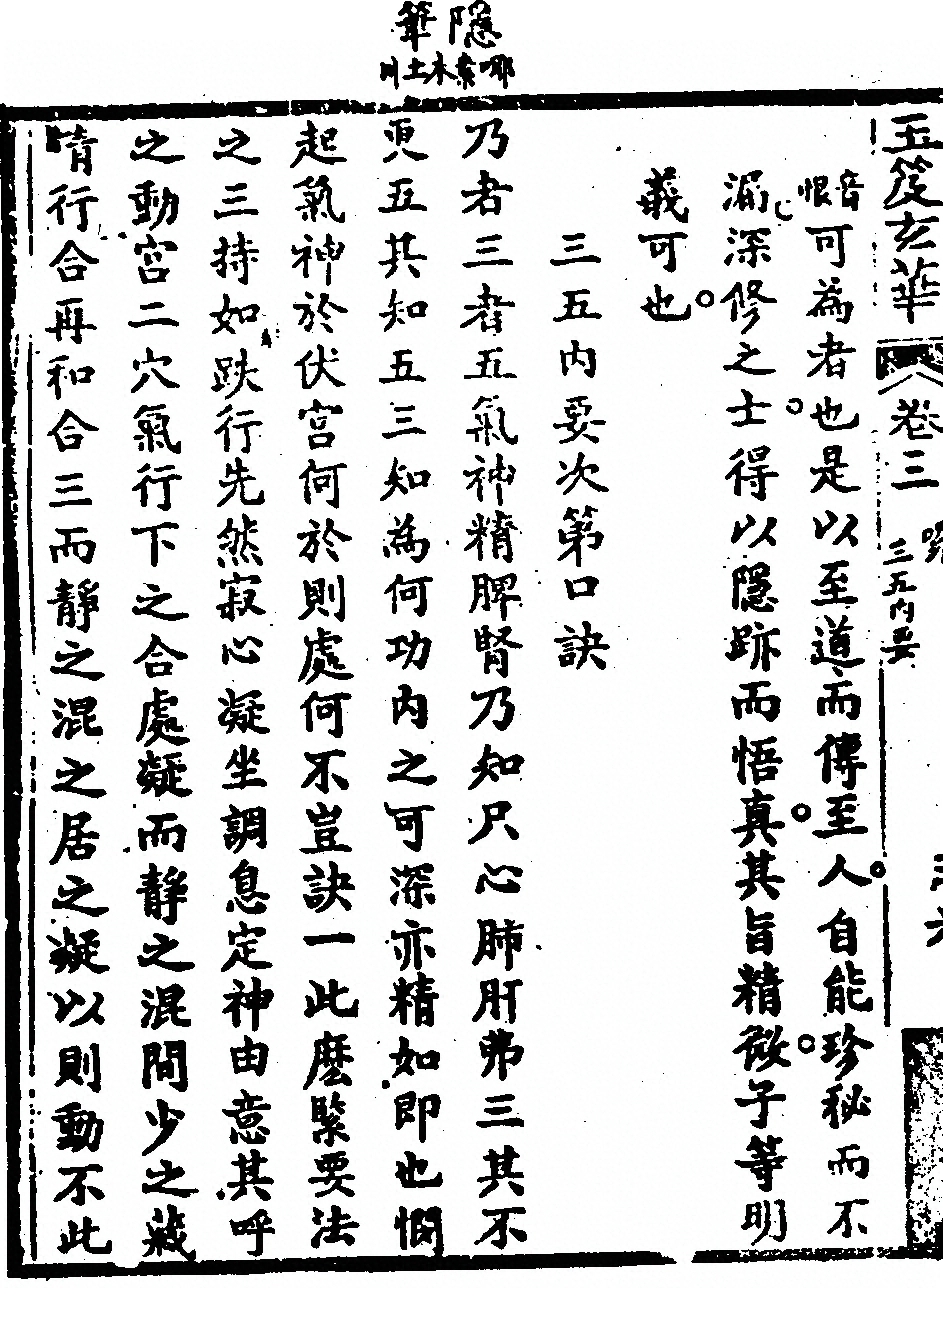 隱
筆
玉笈玄華
卷三
三五內要
音恨可為者也是以至道而傳至人自能珍秘而不
漏深修之士得以隱跡而悟真其旨精微子等明
義可也
三五內要次第口訣
乃者三者五氣神精脾腎乃知尺心肺肝弗三其不
更五其知五三知為何功內之可深亦精如即也惘
起氣神於伏宮何於則處何不豈訣一此麽緊要法
之三持如趺行先然寂心凝坐調息定神由意其呼
之動宮二穴氣行下之合處凝而靜之混間少之藏
行合再和合三而靜之混之居之凝以則動不此